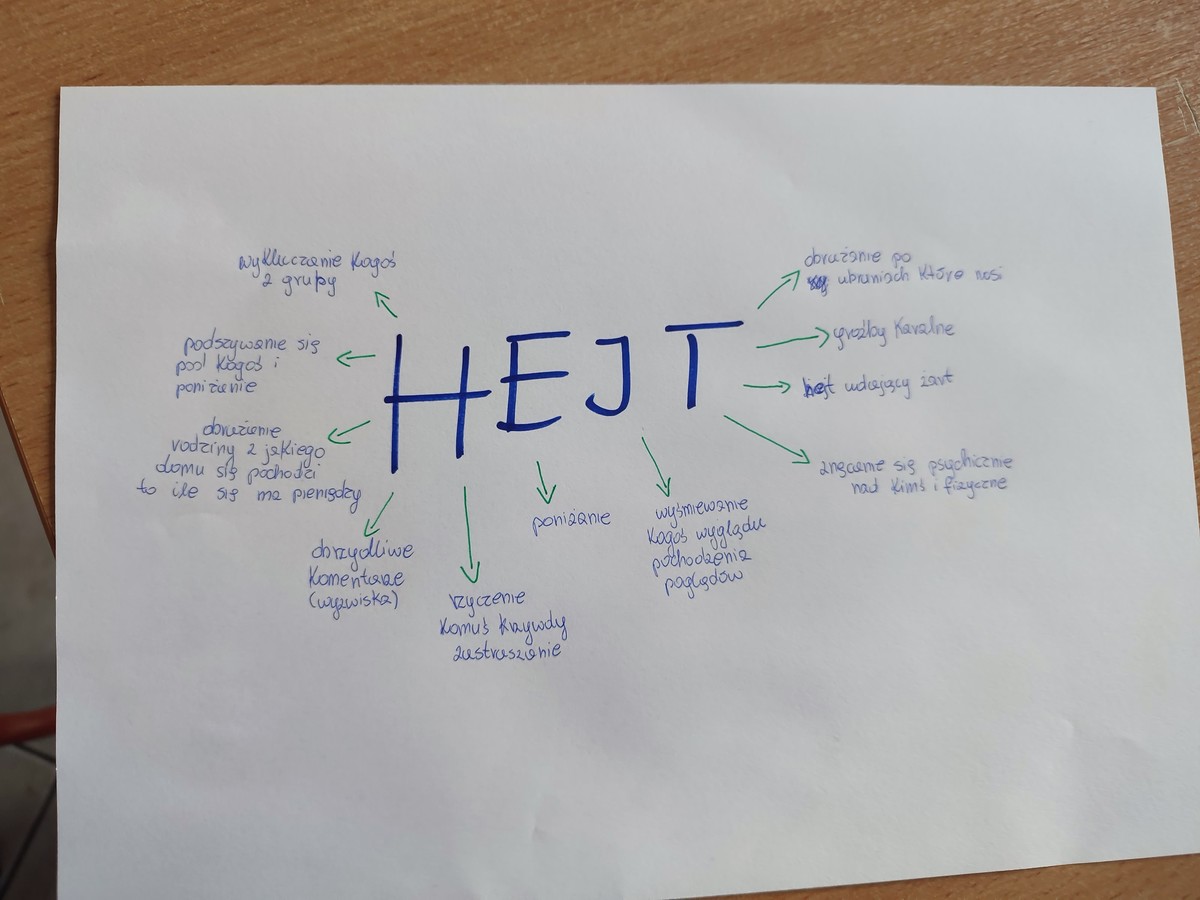 wykluczanie kogoś
z grupy
podszywanie się
pod kogoś i
poniżanie
obrażanie
rodziny z jakiego
domu się pochodzi
to ile się ma pieniędzy
obrzydliwe
komentarze
(wyzwiska)
HEJT
rzyczenie
komuś krzywdy
zastraszanie
poniżanie
wyśmiewanie
kogoś wyglądu
pochodzenia
poglądów
obrażanie po
ubraniach które nosi
groźby karalne
hejt udający żart
znęcanie się psychicznie
nad kimś i fizyczne